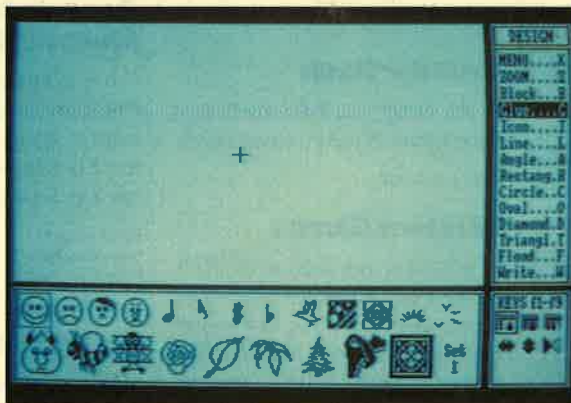 DESIGN
MENU....X
ZOOM....Z
Block...B
Icon....I
Line....L
Angle...A
Rectang.R
Circle..C
Oval....O
Diamond.D
Triangl.T
Flood...F
Write...W
KEYS F1-F9
Set
1